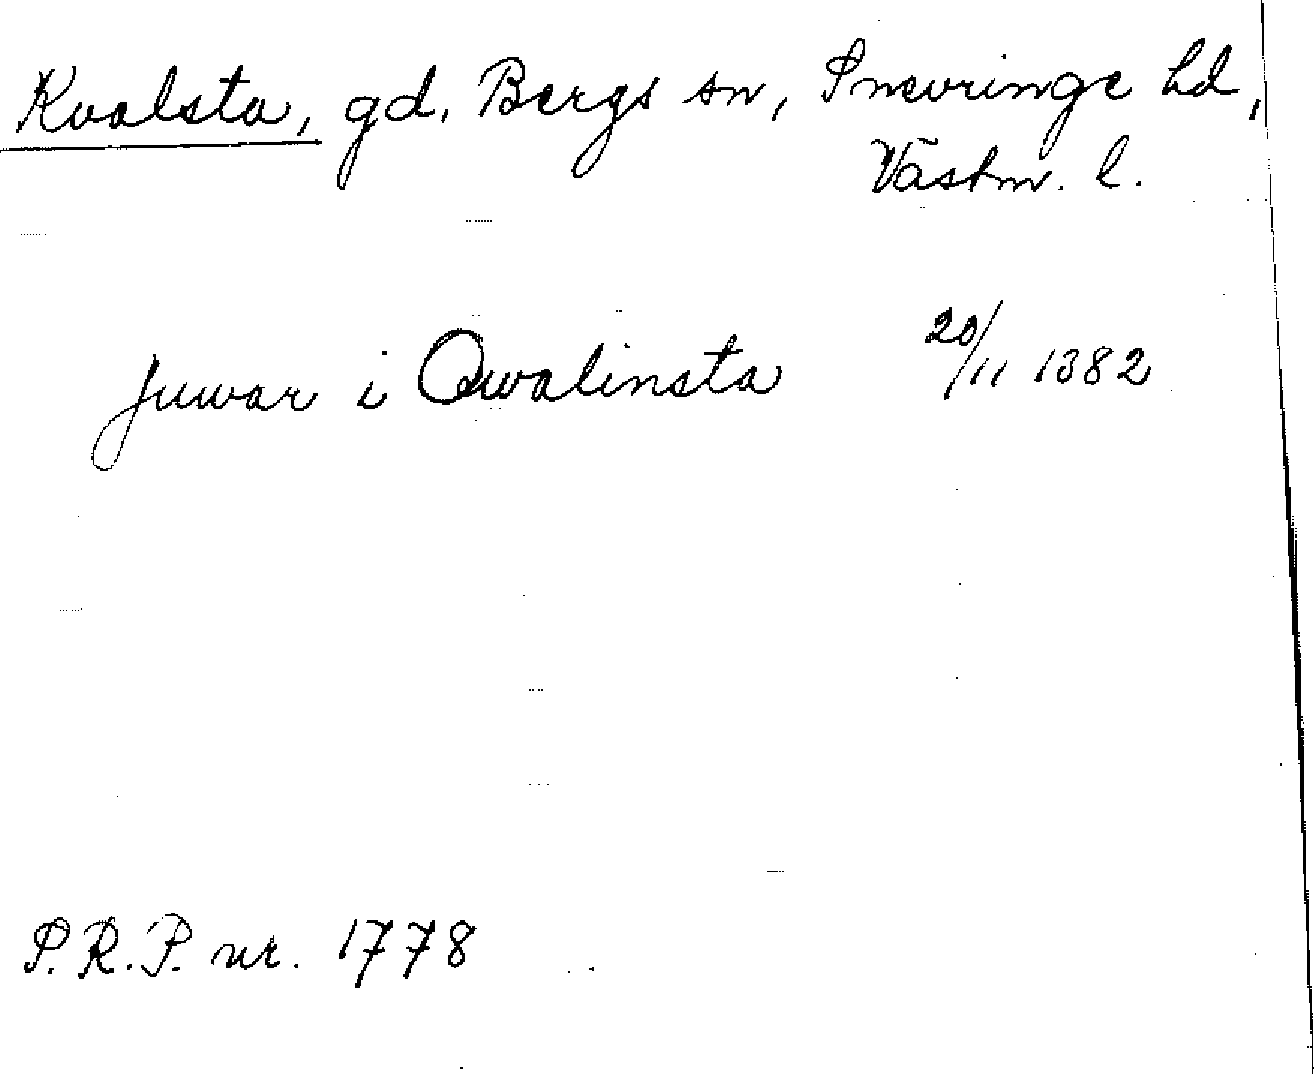 Kvalsta, gd, Bergs sn, Snevringe hd,
Västm. l.
Juwar i Qwalinsta 20/11 1382
S.R.P. nr. 1778